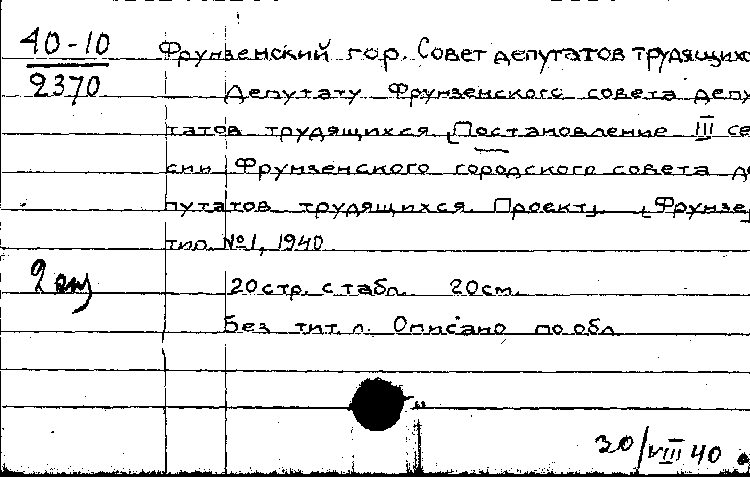 40-10
2370
Фрунзенский гор. Совет депутатов трудящихс
Депутату Фрунзенского совета депу
татов трудящихся. [Постановление III се
сии Фрунзенского городского совета де
путатов трудящихся. Проект]. [Фрунзе]
тип. №1, 1940
2 экз
20 стр. с табл. 20 см.
Без тит. л. Описано по обл.
20/VIII 40